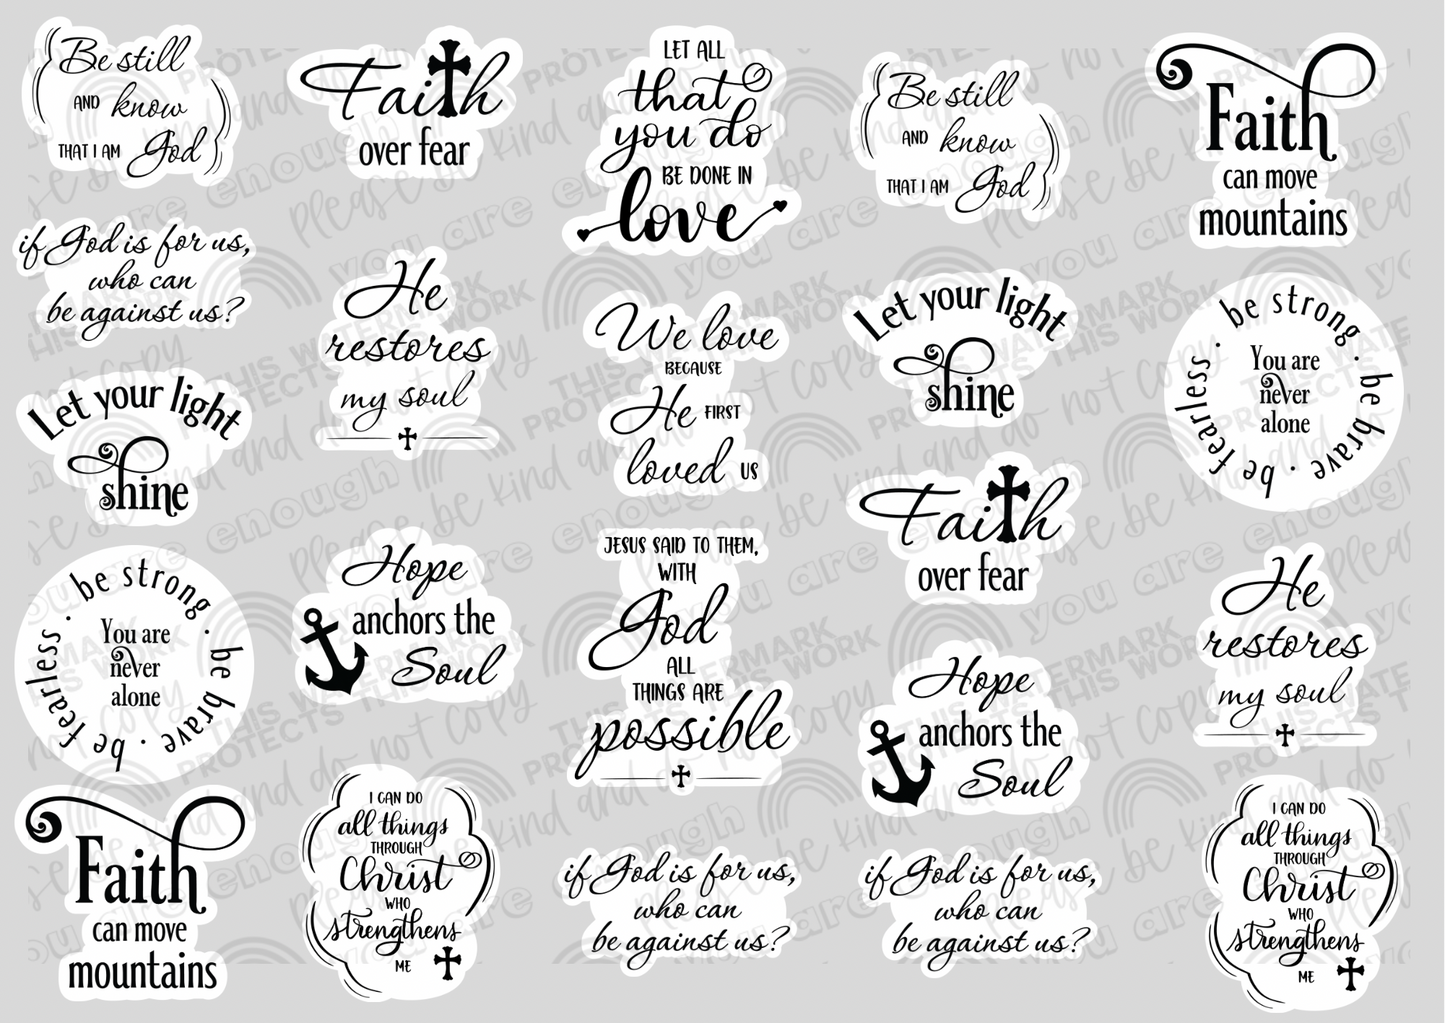 Be still
AND know
THAT I AM God
Faith
over fear
LET ALL
that
you do
BE DONE IN
love
Be still
AND know
THAT I AM God
Faith
can move
mountains
if God is for us,
who can
be against us?
He
restores
my soul
We love
BECAUSE
He FIRST
loved US
Let your light
shine
be strong . be brave . be fearless .
You are
never
alone
Let your light
shine
Faith
over fear
be strong . be brave . be fearless .
You are
never
alone
Hope
anchors the
Soul
JESUS SAID TO THEM,
WITH
God
ALL
THINGS ARE
possible
Hope
anchors the
Soul
He
restores
my soul
Faith
can move
mountains
I CAN DO
all things
THROUGH
Christ
WHO
strengthens
ME
if God is for us,
who can
be against us?
if God is for us,
who can
be against us?
I CAN DO
all things
THROUGH
Christ
WHO
strengthens
ME
you are enough
please be kind and do not copy
THIS WATERMARK
PROTECTS THIS WORK